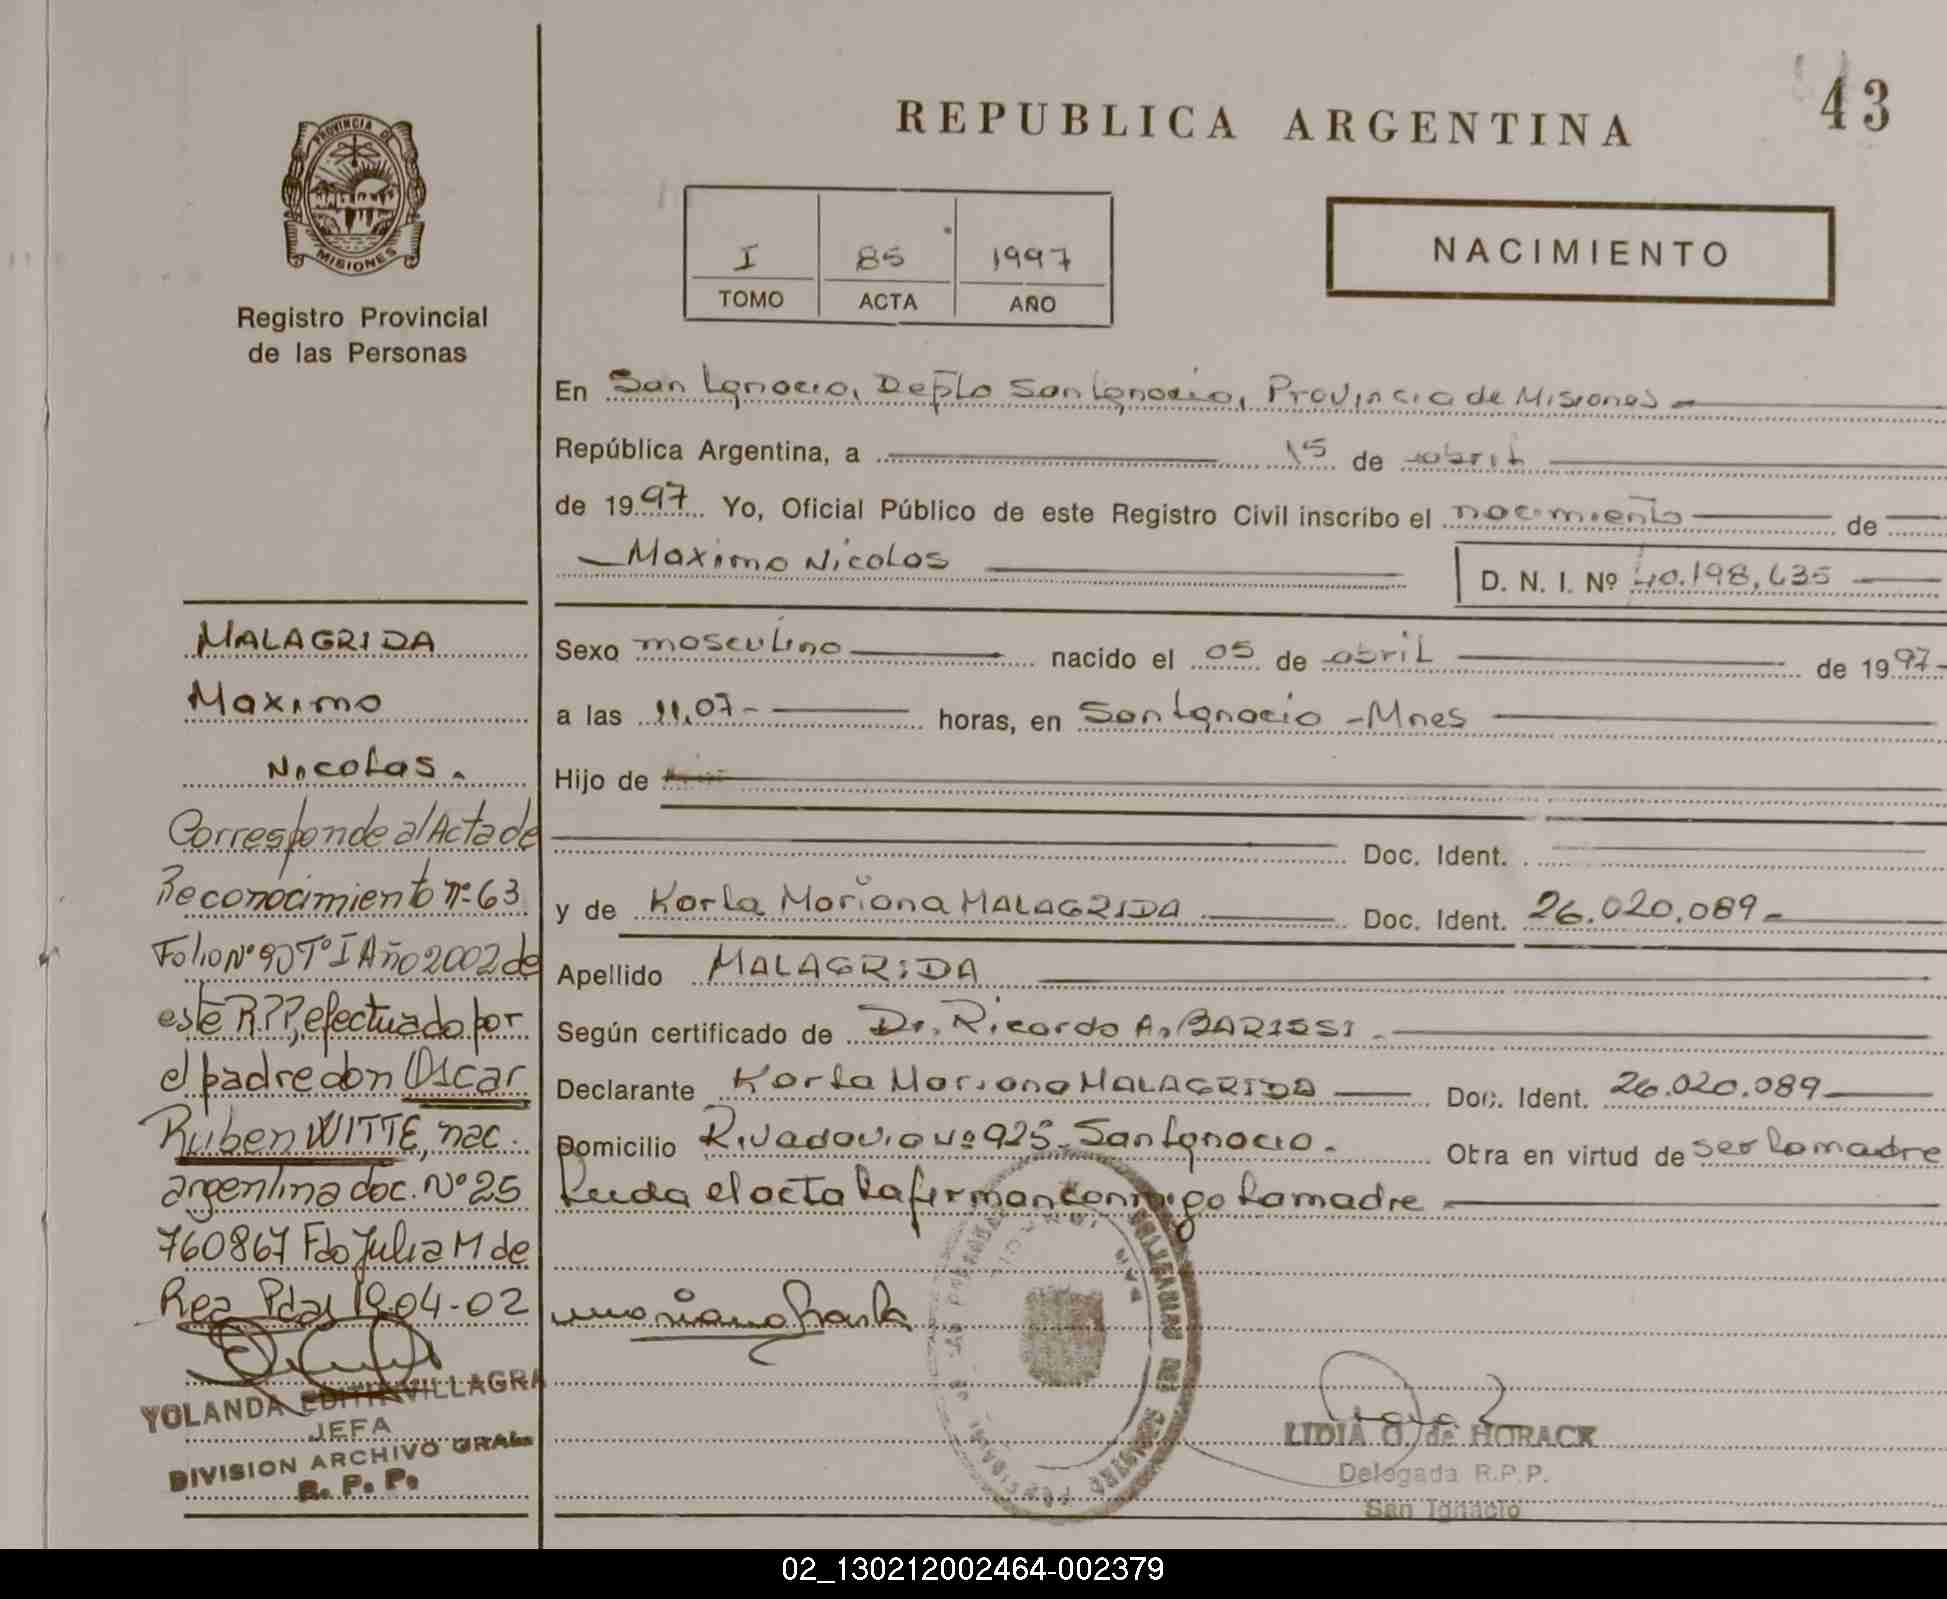 REPUBLICA ARGENTINA
43
PROVINCIA DE
MISIONES
Registro Provincial
de las Personas
I 85 1997
TOMO ACTA AÑO
NACIMIENTO
En San Ignacio, Depto San Ignacio, Provincia de Misiones
República Argentina, a 15 de abril
de 1997 Yo, Oficial Público de este Registro Civil inscribo el nacimiento de
Maximo Nicolas D. N. I. Nº 40.198.635
Sexo masculino nacido el 05 de abril de 1997
a las 11,07 horas, en San Ignacio - Mnes
Hijo de
Doc. Ident.
y de Karla Mariana MALAGRIDA Doc. Ident. 26.020.089
Apellido MALAGRIDA
Según certificado de Dr. Ricardo A. BARISSI
Declarante Karla Mariana MALAGRIDA Doc. Ident. 26.020.089
Domicilio Rivadavia Nº 925 - San Ignacio. Obra en virtud de ser la madre
Leida el acta la firman conmigo la madre
Mariana Karla
LIDIA G. de HORACK
Delegada R.P.P.
San Ignacio
MALAGRIDA
Maximo
Nicolas.
Corresponde al Acta de
Reconocimiento nº 63
Folio Nº 90 Tº I Año 2002 de
este R.P.P, efectuado por
el padre don Oscar
Ruben WITTE, nac.
argentina doc. Nº 25
760867 Fdo Julia M de
Rea Pdas 19-04-02
YOLANDA EDITH VILLAGRA
JEFA
DIVISION ARCHIVO GRAL.
R. P. P.
02_130212002464-002379